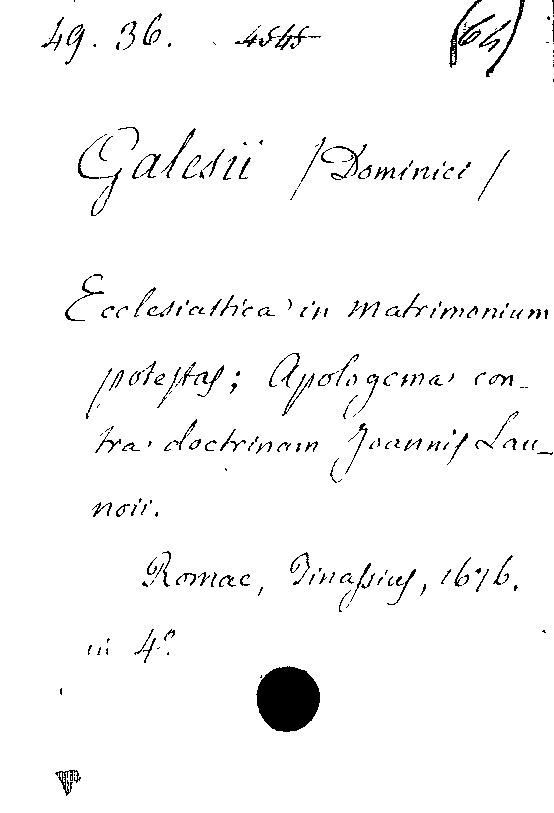 49. 36. 4545 (64)
Galesii /Dominici/
Ecclesiastica in matrimonium
potestas; Apologema con-
tra doctrinam Joannis Lau-
noii.
Romae, Tinassius, 1676.
in 4º